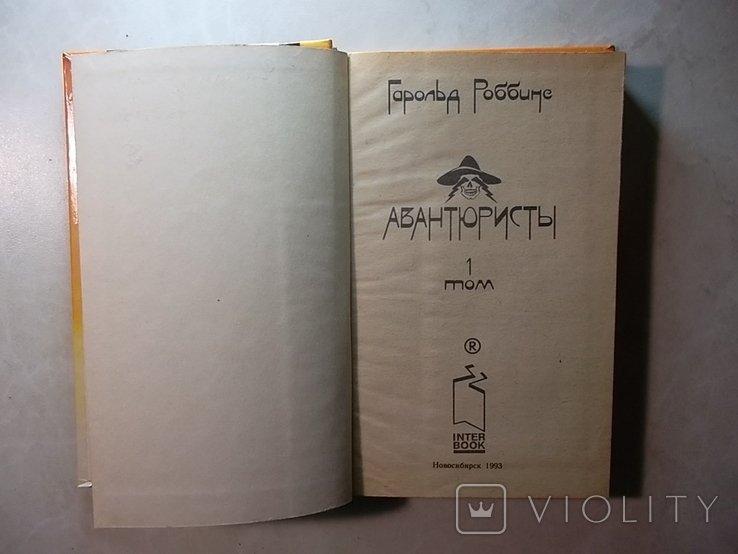 Гарольд Роббинс
АВАНТЮРИСТЫ
1
том
®
INTER
BOOK
Новосибирск 1993
VIOLITY